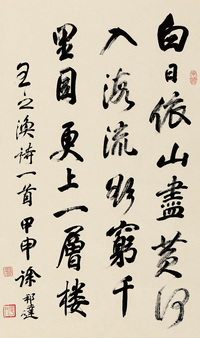 白日依山盡黄河
入海流欲窮千
里目更上一層楼
王之渙詩一首 甲申 徐邦達